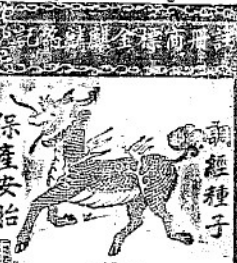 註冊商標金麒麟為記
調經種子
保產安胎